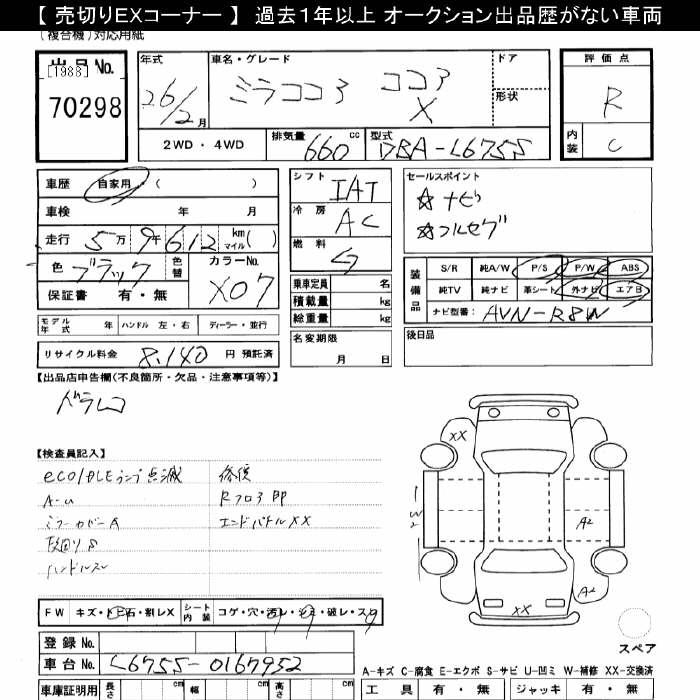 【 売切りEXコーナー 】 過去1年以上 オークション出品歴がない車両
(複合機)対応用紙
出品No.
[1988]
70298
年式
26/2月
車名・グレード
ミラココア ココア X
ドア
形状
評価点
R
内装
C
2WD ・ 4WD
排気量
660 cc
型式
DBA-L675S
車歴 自家用 ( )
車検 年 月
走行 5万9千612 km マイル ( )
色 ブラック 色替
カラーNo.
X07
保証書 有・無
シフト
IAT
冷房
AC
燃料
G
乗車定員 名
積載量 kg
総重量 kg
セールスポイント
☆ナビ
☆フルセグ
装備品
S/R 純A/W P/S P/W ABS
純TV 純ナビ 革シート 外ナビ エアB
ナビ型番: AVN-R8W
モデル年式 年 ハンドル 左・右 ディーラー・並行
名変期限
月 日
後日品
リサイクル料金 8,140 円 預託済
【出品店申告欄(不良箇所・欠品・注意事項等)】
ドラレコ
【検査員記入】
eco/IDLEランプ点滅
A-U
ミラーカバーA
ハンドルスレ
修復
Rフロア
エンドパネルXX
XX
W2
A2
A2
XX
FW キズ・トビ石・割レX
シート内装 コゲ・穴・汚レ・シミ・破レ・スレ
スペア
登録No.
車台No. L675S-0167952
A-キズ C-腐食 E-エクボ S-サビ U-凹ミ W-補修 XX-交換済
車庫証明用 長さ cm 幅 cm 高さ cm
工具 有・無 ジャッキ 有・無